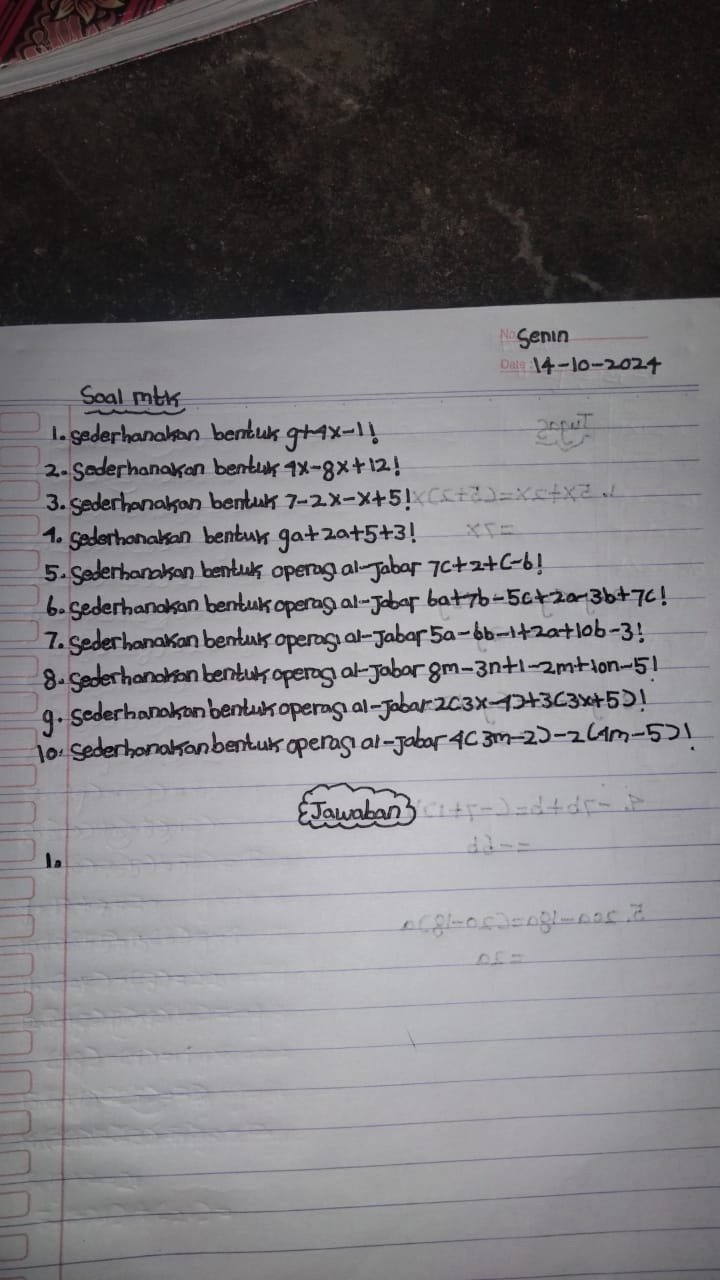 No Senin
Date: 14-10-2024
Soal mtk
1. Sederhanakan bentuk 9+4x-1!
2. Sederhanakan bentuk 4x-8x+12!
3. Sederhanakan bentuk 7-2x-x+5!
4. Sederhanakan bentuk 9a+2a+5+3!
5. Sederhanakan bentuk operasi al-jabar 7c+2+c-6!
6. Sederhanakan bentuk operasi al-jabar 6a+7b-5c+2a-3b+7c!
7. Sederhanakan bentuk operasi al-jabar 5a-6b-1+2a+10b-3!
8. Sederhanakan bentuk operasi al-jabar 8m-3n+1-2m+10n-5!
9. Sederhanakan bentuk operasi al-jabar 2(3x-4)+3(3x+5)!
10. Sederhanakan bentuk operasi al-jabar 4(3m-2)-2(4m-5)!
{Jawaban}
1.